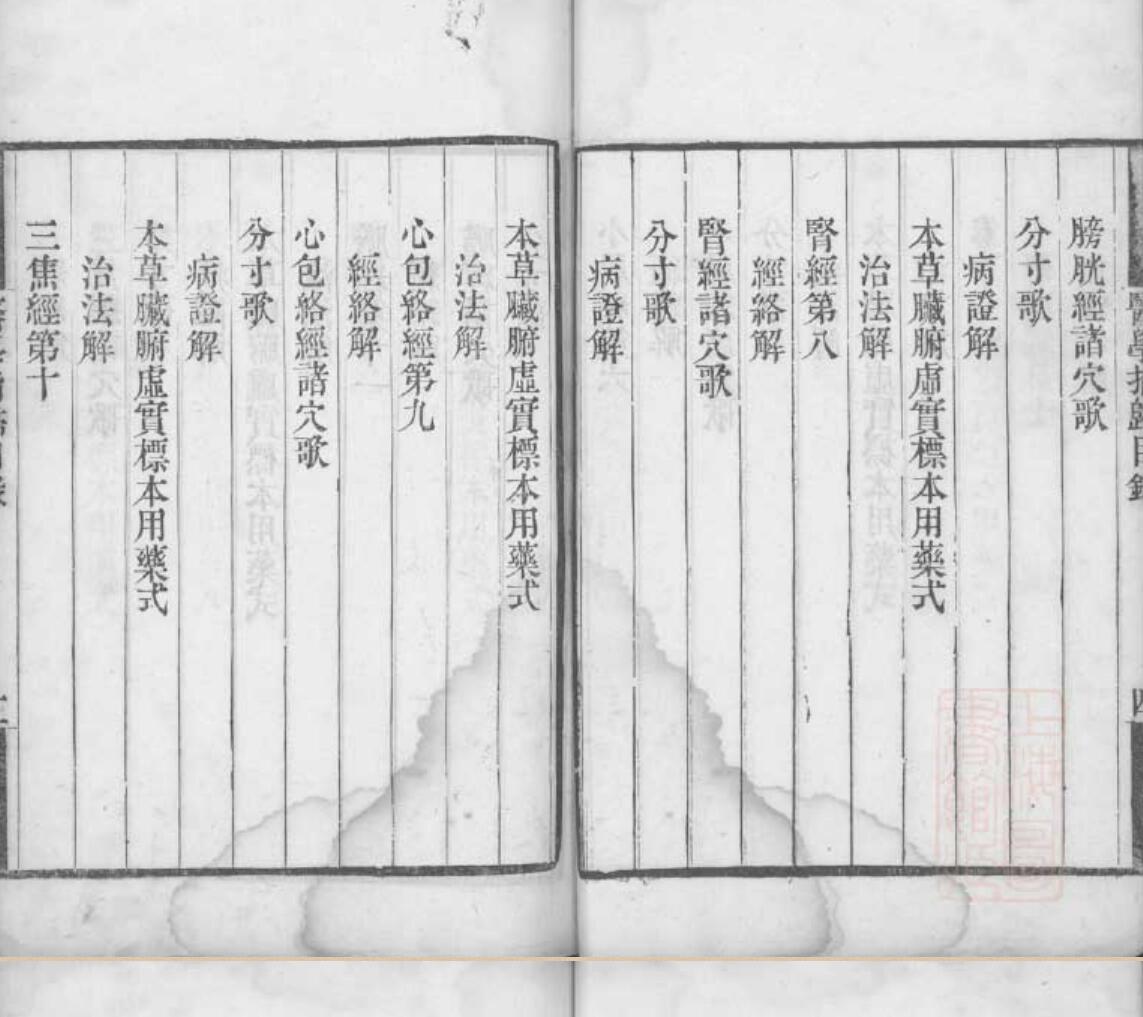 膀胱經諸穴歌
分寸歌
病證解
本草臟腑虛實標本用藥式
治法解
腎經第八
經絡解
腎經諸穴歌
分寸歌
病證解
本草臟腑虛實標本用藥式
治法解
心包絡經第九
經絡解
心包絡經諸穴歌
分寸歌
病證解
本草臟腑虛實標本用藥式
治法解
三焦經第十